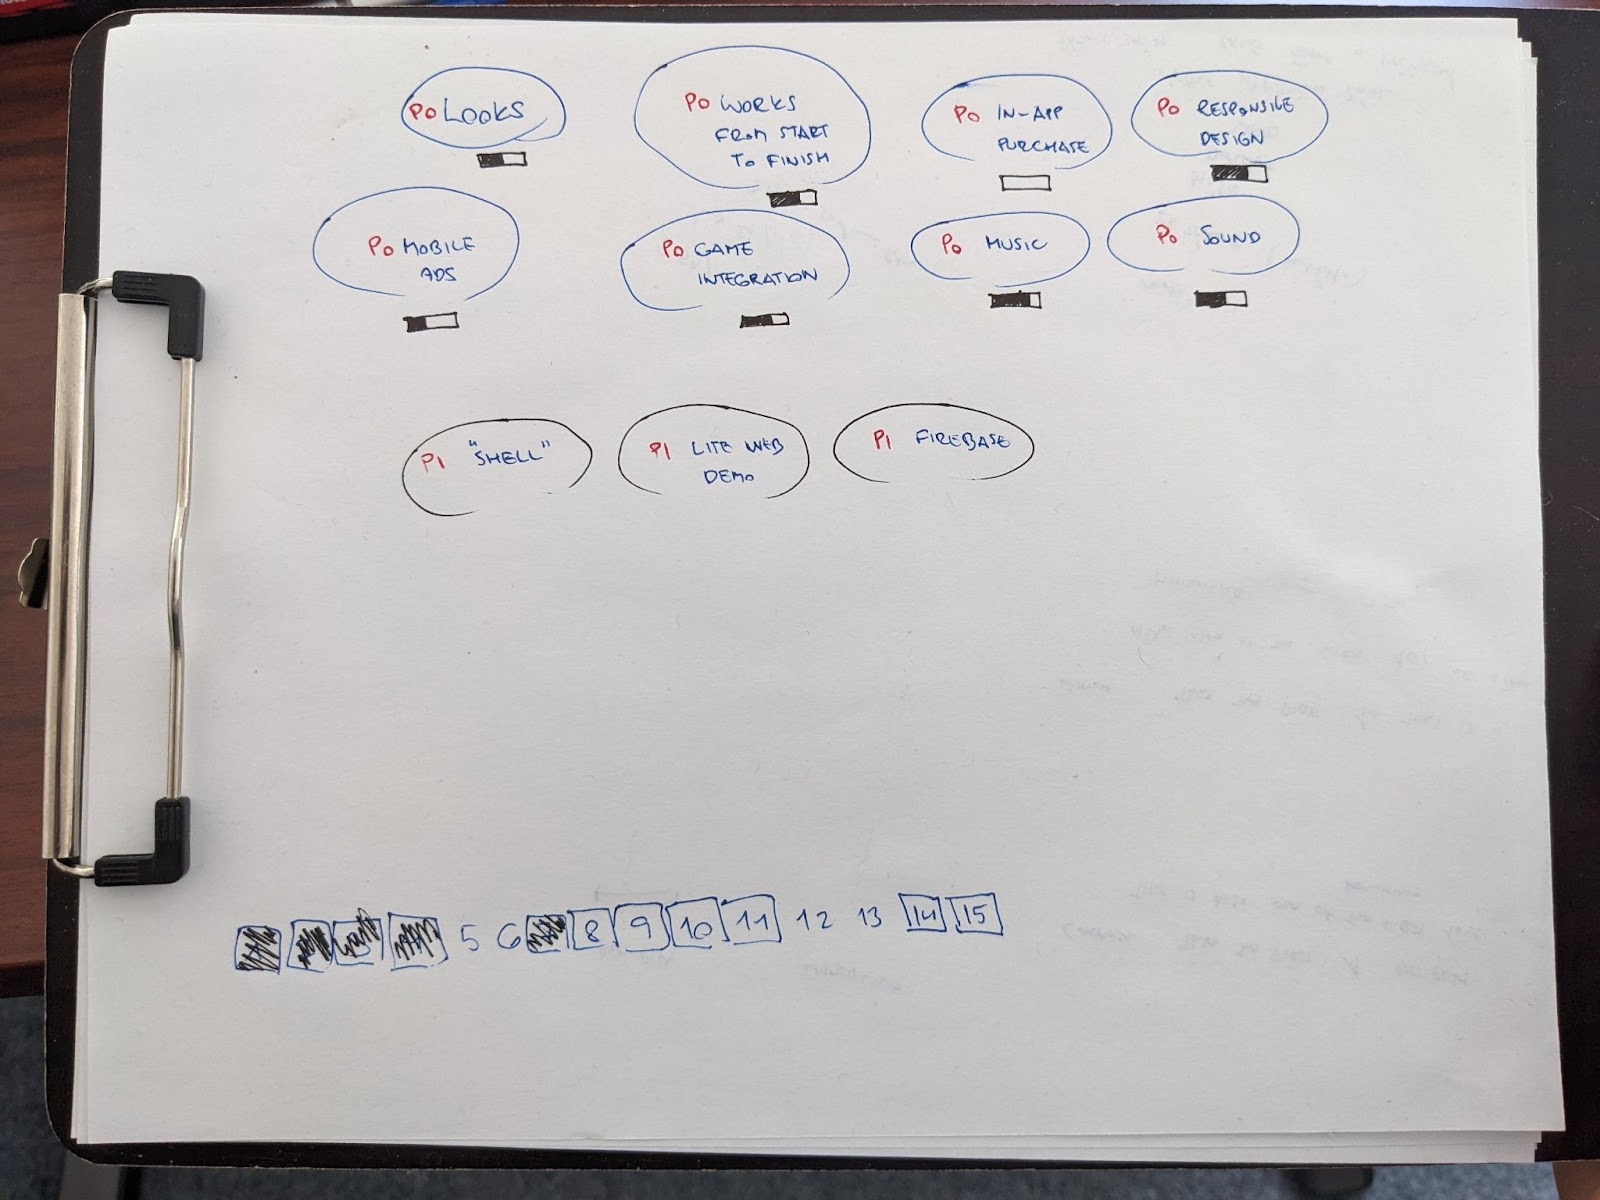 P0 LOOKS
P0 WORKS
FROM START
TO FINISH
P0 IN-APP
PURCHASE
P0 RESPONSIVE
DESIGN
P0 MOBILE
ADS
P0 GAME
INTEGRATION
P0 MUSIC
P0 SOUND
P1 "SHELL"
P1 LITE WEB
DEMO
P1 FIREBASE
5 6 8 9 10 11 12 13 14 15